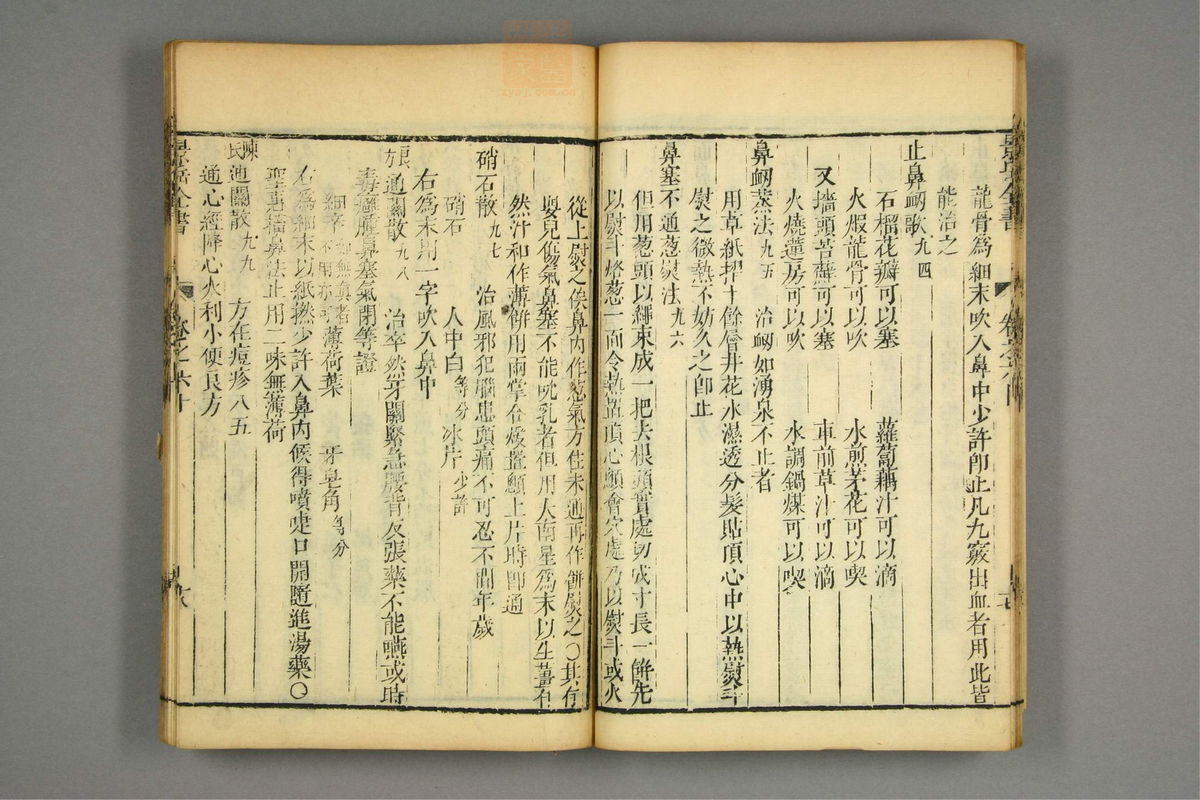 景岳全書
龍骨爲細末吹入鼻中少許卽止凡九竅出血者用此皆
能治之
止鼻衂歌九四
石榴花瓣可以塞 蘿蔔藕汁可以滴
火煅龍骨可以吹 水煎茅花可以喫
又墻頭苔蘚可以塞 車前草汁可以滴
火燒蓮房可以吹 水調鍋煤可以喫
鼻衂蒸法九五 治衂如湧泉不止者
用草紙摺十餘層井花水濕透分髮貼頂心中以熱熨斗
熨之微熱不妨久之卽止
鼻塞不通葱熨法九六
但用葱頭以繩束成一把去根頭實處切成寸長一餅先
以熨斗烙葱一面令熱置頂心顖會穴處乃以熨斗或火
從上熨之俟鼻内作葱氣方住未通再作餅熨之〇其有
嬰兒傷氣鼻塞不能吮乳者但用大南星爲末以生薑自
然汁和作薄餅用兩掌合煖置顖上片時卽通
硝石散九七 治風邪犯腦患頭痛不可忍不問年歲
硝石 人中白等分 冰片少許
右爲末用一字吹入鼻中
良方通關散九八 治卒然牙關緊急腰背反張藥不能嚥或時
毒癰腫鼻塞氣閉等證
細辛如無眞者不用亦可 薄荷葉 牙皂角等分
右爲細末以紙撚少許入鼻内候得噴嚏口開隨進湯藥〇
聖惠搐鼻法止用二味無薄荷
陳氏通關散九九 方在痘疹八五
通心經降心火利小便良方
景岳全書
卷之六十